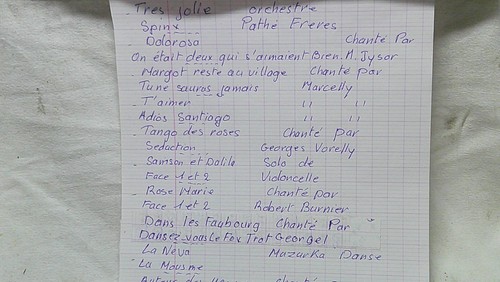 Tres jolie orchestre
Spinx Pathé Freres
Dolorosa Chanté Par
On était deux qui s'aimaient Bien. M. Jysor
Margot reste au village Chanté par
Tu ne sauras jamais Marcelly
T'aimer " "
Adios Santiago " "
Tango des roses Chanté par
Seduction Georges Vorelly
Samson et Dalila Solo de
Face 1 et 2 Violoncelle
Rose Marie Chanté par
Face 1 et 2 Robert Burnier
Dans les Faubourg Chanté Par
Dansez vous le Fox Trot Georgel
La Néva Mazurka Danse
La Mousme